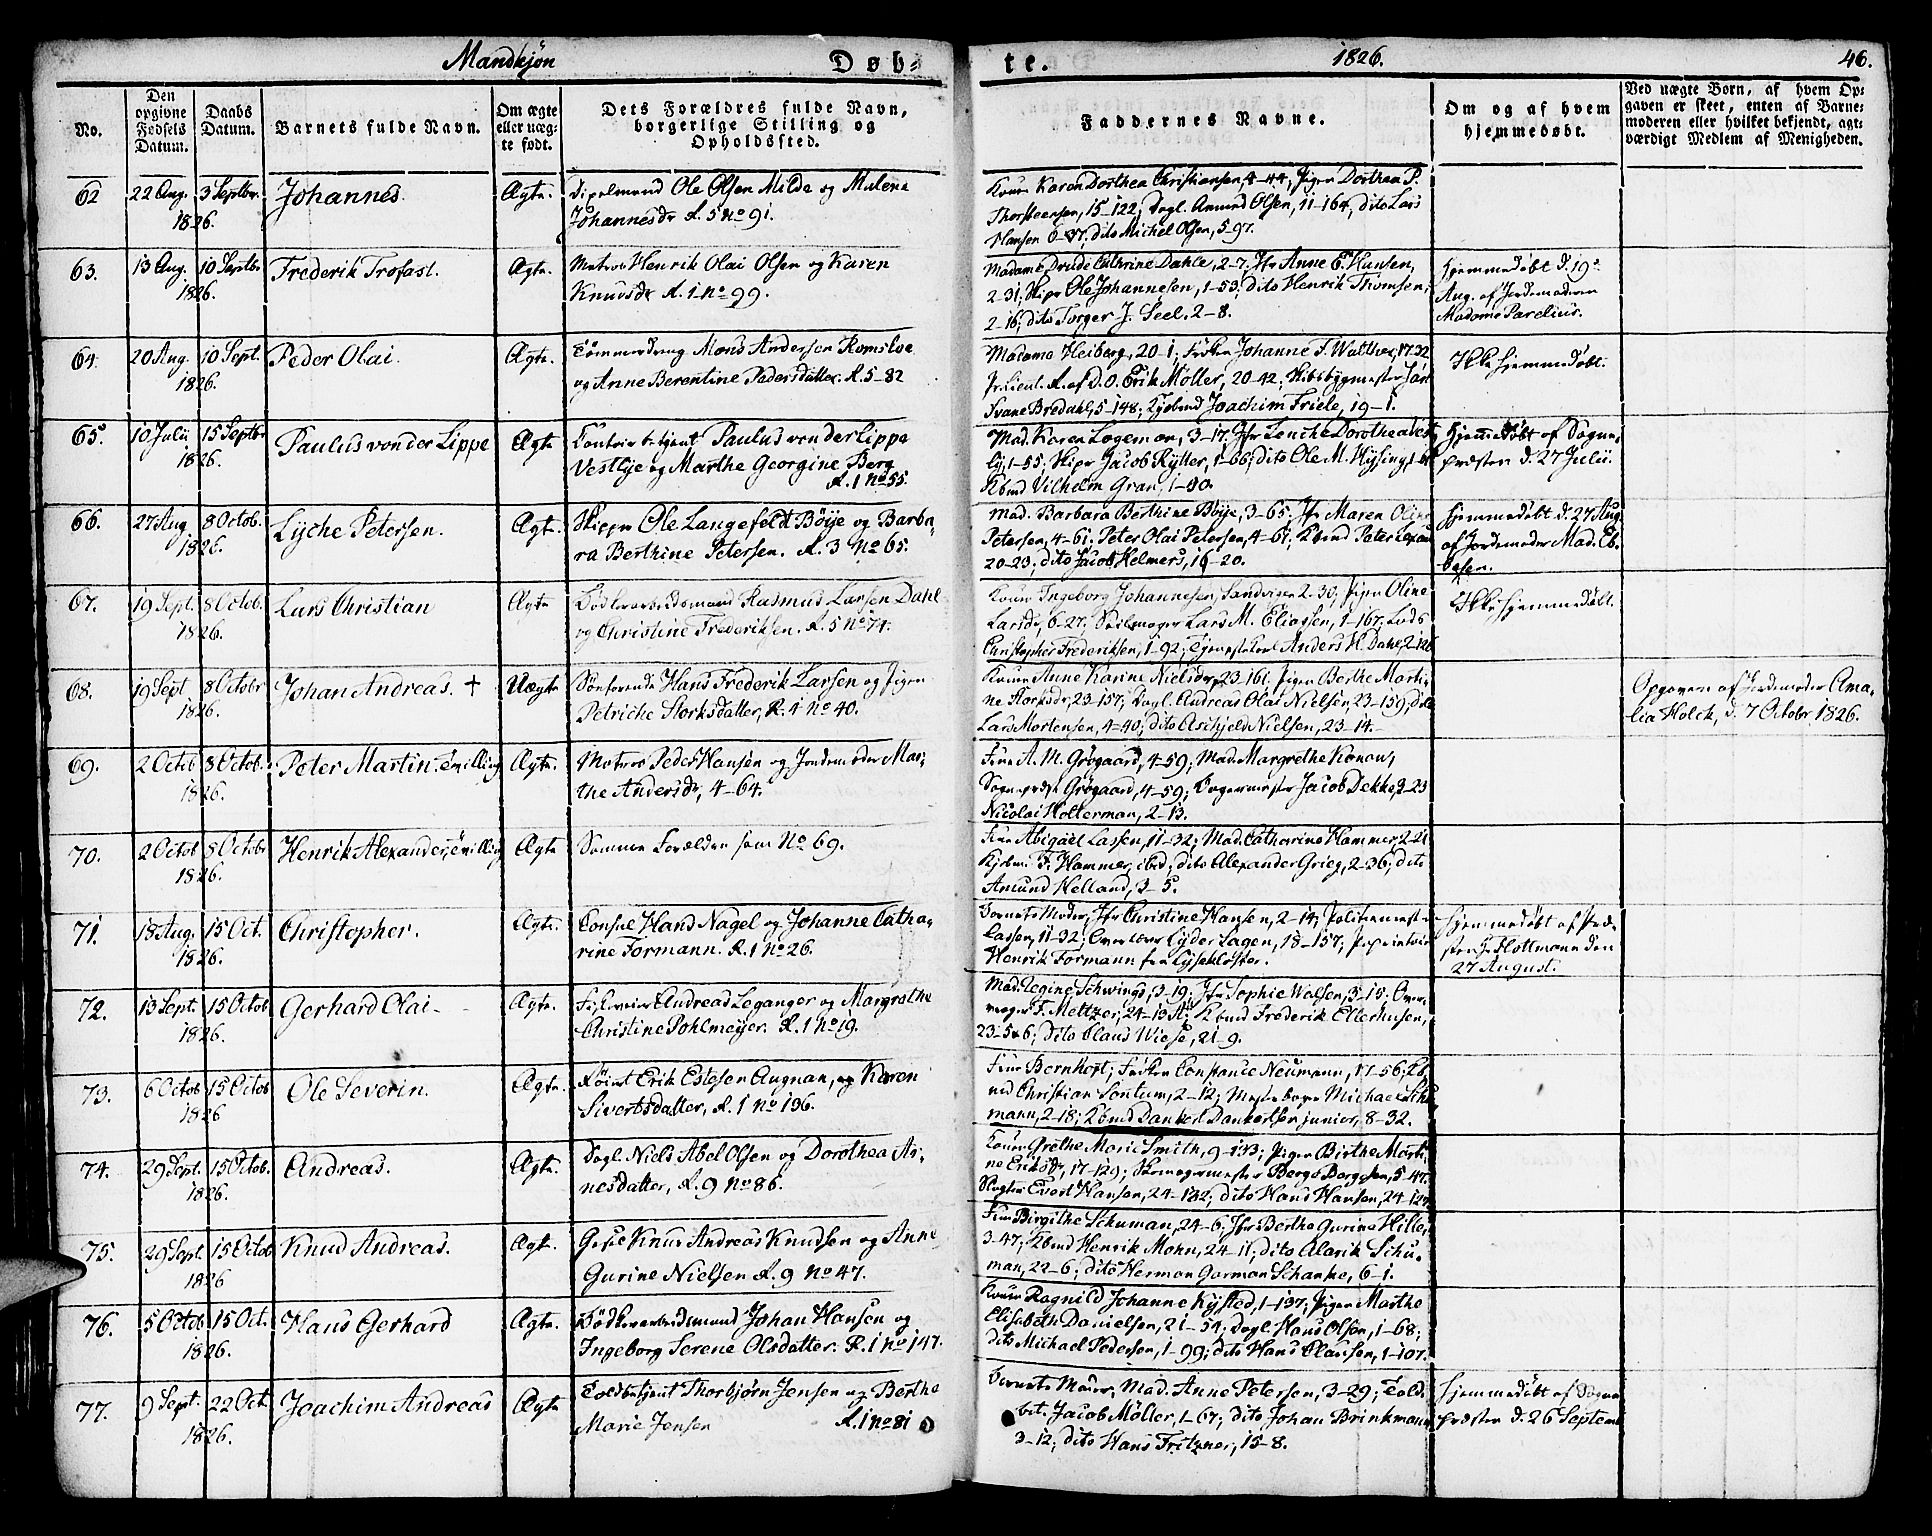 Mandkjøn Døb-
te. 1826. 46.
No.
Den opgivne Fødsels Datum.
Daabs Datum.
Barnets fulde Navn.
Om ægte eller uæg- te født.
Dets Forældres fulde Navn, borgerlige Stilling og Opholdsfted.
Faddernes Navne.
Om og af hvem hjemmedøbt.
Ved uægte Børn, af hvem Op- gaven er skeet, enten af Barne- moderen eller hvilket bekjendt, agt- værdigt Medlem af Menigheden.
62 22 Aug. 3 Septbr. Johannes. Ægte. Ole Olsen Milde og Malene
1826. Johannesdr R. 5 No 91.
Kone Karen Dorthea Christiansen, 4-44, Pigen Dorthea P.
Thorsteensen, 15-122; Dagl. Amund Olsen, 11-164, dito Lars
Hansen 6-37, dito Michel Olsen, 5-97.
63. 13 Aug. 10 Septbr. Frederik Trofast. Ægte. Matros Henrik Olai Olsen og Karen
1826. Knudsdr R. 1 No 99.
Madame Drude Cathrine Dahle, 2-7, Jfr Anne E. Hansen,
2-31, Skipr Ole Johannesen, 1-53; dito Henrik Thomsen,
2-16; dito Torger J. Seel, 2-8.
Hjemmedøbt d. 19e
Aug. af Jordemoderen
Madame Parelius.
64. 20 Aug. 10 Sept. Peder Olai. Ægte. Tømmerdreng Mons Andersen Romsloe
1826. og Anne Berentine Pedersdatter. R. 5-82
Madame Heiberg, 20-1; Frøken Johanne F. Walther, 17-32
Pr. Lieut. R. af D. O. Erik Møller, 20-42; Skibsbygmester Jørl
Svane Bredahl, 5-148; Kjøbmd Joachim Friele, 19-1.
Ikke hjemmedøbt.
65. 10 Julii 15 Septbr Paulus von der Lippe Ægte Contoirbetjent Paulus von der Lippe
1826. Vestlye og Marthe Georgine Berg
R. 1 No 55.
Mad. Karen Logeman, 3-17. Jfr Lenche Dorothea Vest-
lÿ, 1-55; Skipr Jacob Rÿtter, 1-66; dito Ole M. Hysing, 1-
Kbmd Vilhelm Gran, 1-40.
Hjemmedøbt af Sogne-
præsten d. 27 Julii.
66. 27 Aug 8 Octob. Lyche Petersen. Ægte. Skipper Ole Langefeldt Bøije og Barba-
1826. ra Berthine Petersen. R. 3 No 65.
Mad. Barbara Berthine Bøije, 3-65. Jfr Maren Oline
Petersen, 4-61. Peter Olai Petersen, 4-61; Kbmd Peter Lexau
20-23; dito Jacob Helmers, 16-20.
Hjemmedøbt d. 27 Aug
af Jordemoder Mad. Eb-
besen.
67. 19 Sept. 8 Octob. Lars Christian Ægte Bødkerarbeidsmand Rasmus Larsen Dahl
1826. og Christine Frederiksen. R. 5 No 74.
Kone Ingeborg Johannesen, Sandvigen 2-30, Pigen Oline
Larsdr, 6-27; Seilmager Lars M. Eliassen, 1-167; Lods
Christopher Frederiksen, 1-92; Tjenestekarl Anders H. Dahl, 2-126
Ikke hjemmedøbt.
68. 19 Sept 8 Octobr Johan Andreas. † Uægte Søefarende Hans Frederik Larsen og Pigen
1826. Petriche Storksdatter, R. 1 No 40.
Kone Anne Karine Nielsdr, 23-161. Pigen Berthe Marti-
ne Storksdr, 23-157; Dagl. Andreas Olai Nielsen, 23-159; dito
Lars Mortensen, 4-40; dito Askjeld Nielsen, 23-14.
Opgaven af Jordemoder Ama-
lia Holck, d. 7 Octobr 1826.
69. 2 Octob 8 Octob. Peter Martin, Tvilling Ægte. Matros Peder Hansen og Jordemoder Mar-
1826. the Andersdr, 4-64.
Frue A. M. Grøgaard, 4-59; Mad. Margrethe Konau,
Sognepræst Grøgaard, 4-59; Bagermester Jacob Dekke, 3-23
Nicolai Holterman, 2-13.
70. 2 Octob 8 Octobr Henrik Alexander, Tvilling Ægte Samme Forældre som No 69.
1826.
Frue Abigael Lassen, 11-32; Mad. Catharina Hammer, 2-21
Kjøbm. F. Hammer, ibid; dito Alexander Grieg, 2-36; dito
Amund Helland, 3-5.
71. 18 Aug. 15 Oct. Christopher. Ægte. Consul Hans Nagel og Johanne Catha-
1826. rine Formann. R. 1 No 26.
Barnets Moder, Jfr Christine Hansen, 2-14; Politiemest-
Lassen, 11-32; Overlærer Lyder Sagen, 18-157; Proprietair
Henrik Formann fra Lysekloster.
Hjemmedøbt af Præ-
sten J. Flottmann den
27 August.
72. 13 Sept. 15 Octob Gerhard Olai Ægte. Fiskeveier Andreas Leganger og Margrethe
1826. Christine Pohlmeyer. R. 1 No 19.
Mad. Regine Schwings, 3-19. Jfr Sophie Walsen, 3-15; Over-
vrager F. Meltzer, 24-13 A; Kbmd Frederik Ellerhusen,
23-5&6; dito Claus Wiese, 21-9.
73. 6 Octob 15 Octob Ole Severin. Ægte. Erik Estesen Augnan, og Karen
1826 Sivertsdatter, R. 1 No 136.
Frue Bernhoft; Frøken Constance Neumann, 17-56; Kb-
md Christian Sontum, 2-12, Mestebager Michael Schu-
mann, 2-18; Kbmd Dankert Dankertsen junior, 8-32.
74. 29 Sept. 15 Octob. Andreas. Ægte. Dagl. Niels Abel Olsen og Dorothea Ar-
1826. nesdatter, R. 9 No 86.
Kone Grethe Marie Smith, 9-133; Pigen Birthe Marti-
ne Eriksdr, 17-129; Skomagermester Berge Børgesen, 5-47.
Slagter Evert Hansen, 24-132; dito Hans Hansen, 24-124
75. 29 Sept. 15 Octob Knud Andreas. Ægte. Knud Andreas Knudsen og Anne
1826 Gurine Nielsen R. 9 No 47.
Frue Birgithe Schuman, 24-6. Jfr Berthe Gurine Hille,
3-47; Kbmd Henrik Mohn, 24-11; dito Alarik Schu-
man, 22-6; dito Herman Garman Schanke, 6-1.
76. 5 Octob 15 Oct. Hans Gerhard Ægte. Bødkerarbeidsmand Johan Hansen og
1826. Ingeborg Serene Olsdatter. R. 1 No 147.
Kone Ragnild Johanne Kysted, 1-137; Pigen Marthe
Elisabeth Danielsen, 21-54; Dagl. Hans Olsen, 1-68;
dito Michael Pedersen, 1-99; dito Hans Clausen, 1-107.
77. 9 Sept. 22 Oct. Joachim Andreas Ægte Toldbetjent Thorbjørn Jensen og Berthe
1826. Marie Jensen R. 1 No 81
Barnets Moder, Mad. Anne Petersen, 3-29; Told-
bet. Jacob Møller, 1-67; dito Johan Brinkmann
3-12; dito Hans Fritzner, 15-8.
Hjemmedøbt af Sogne-
præsten d. 26 Septem